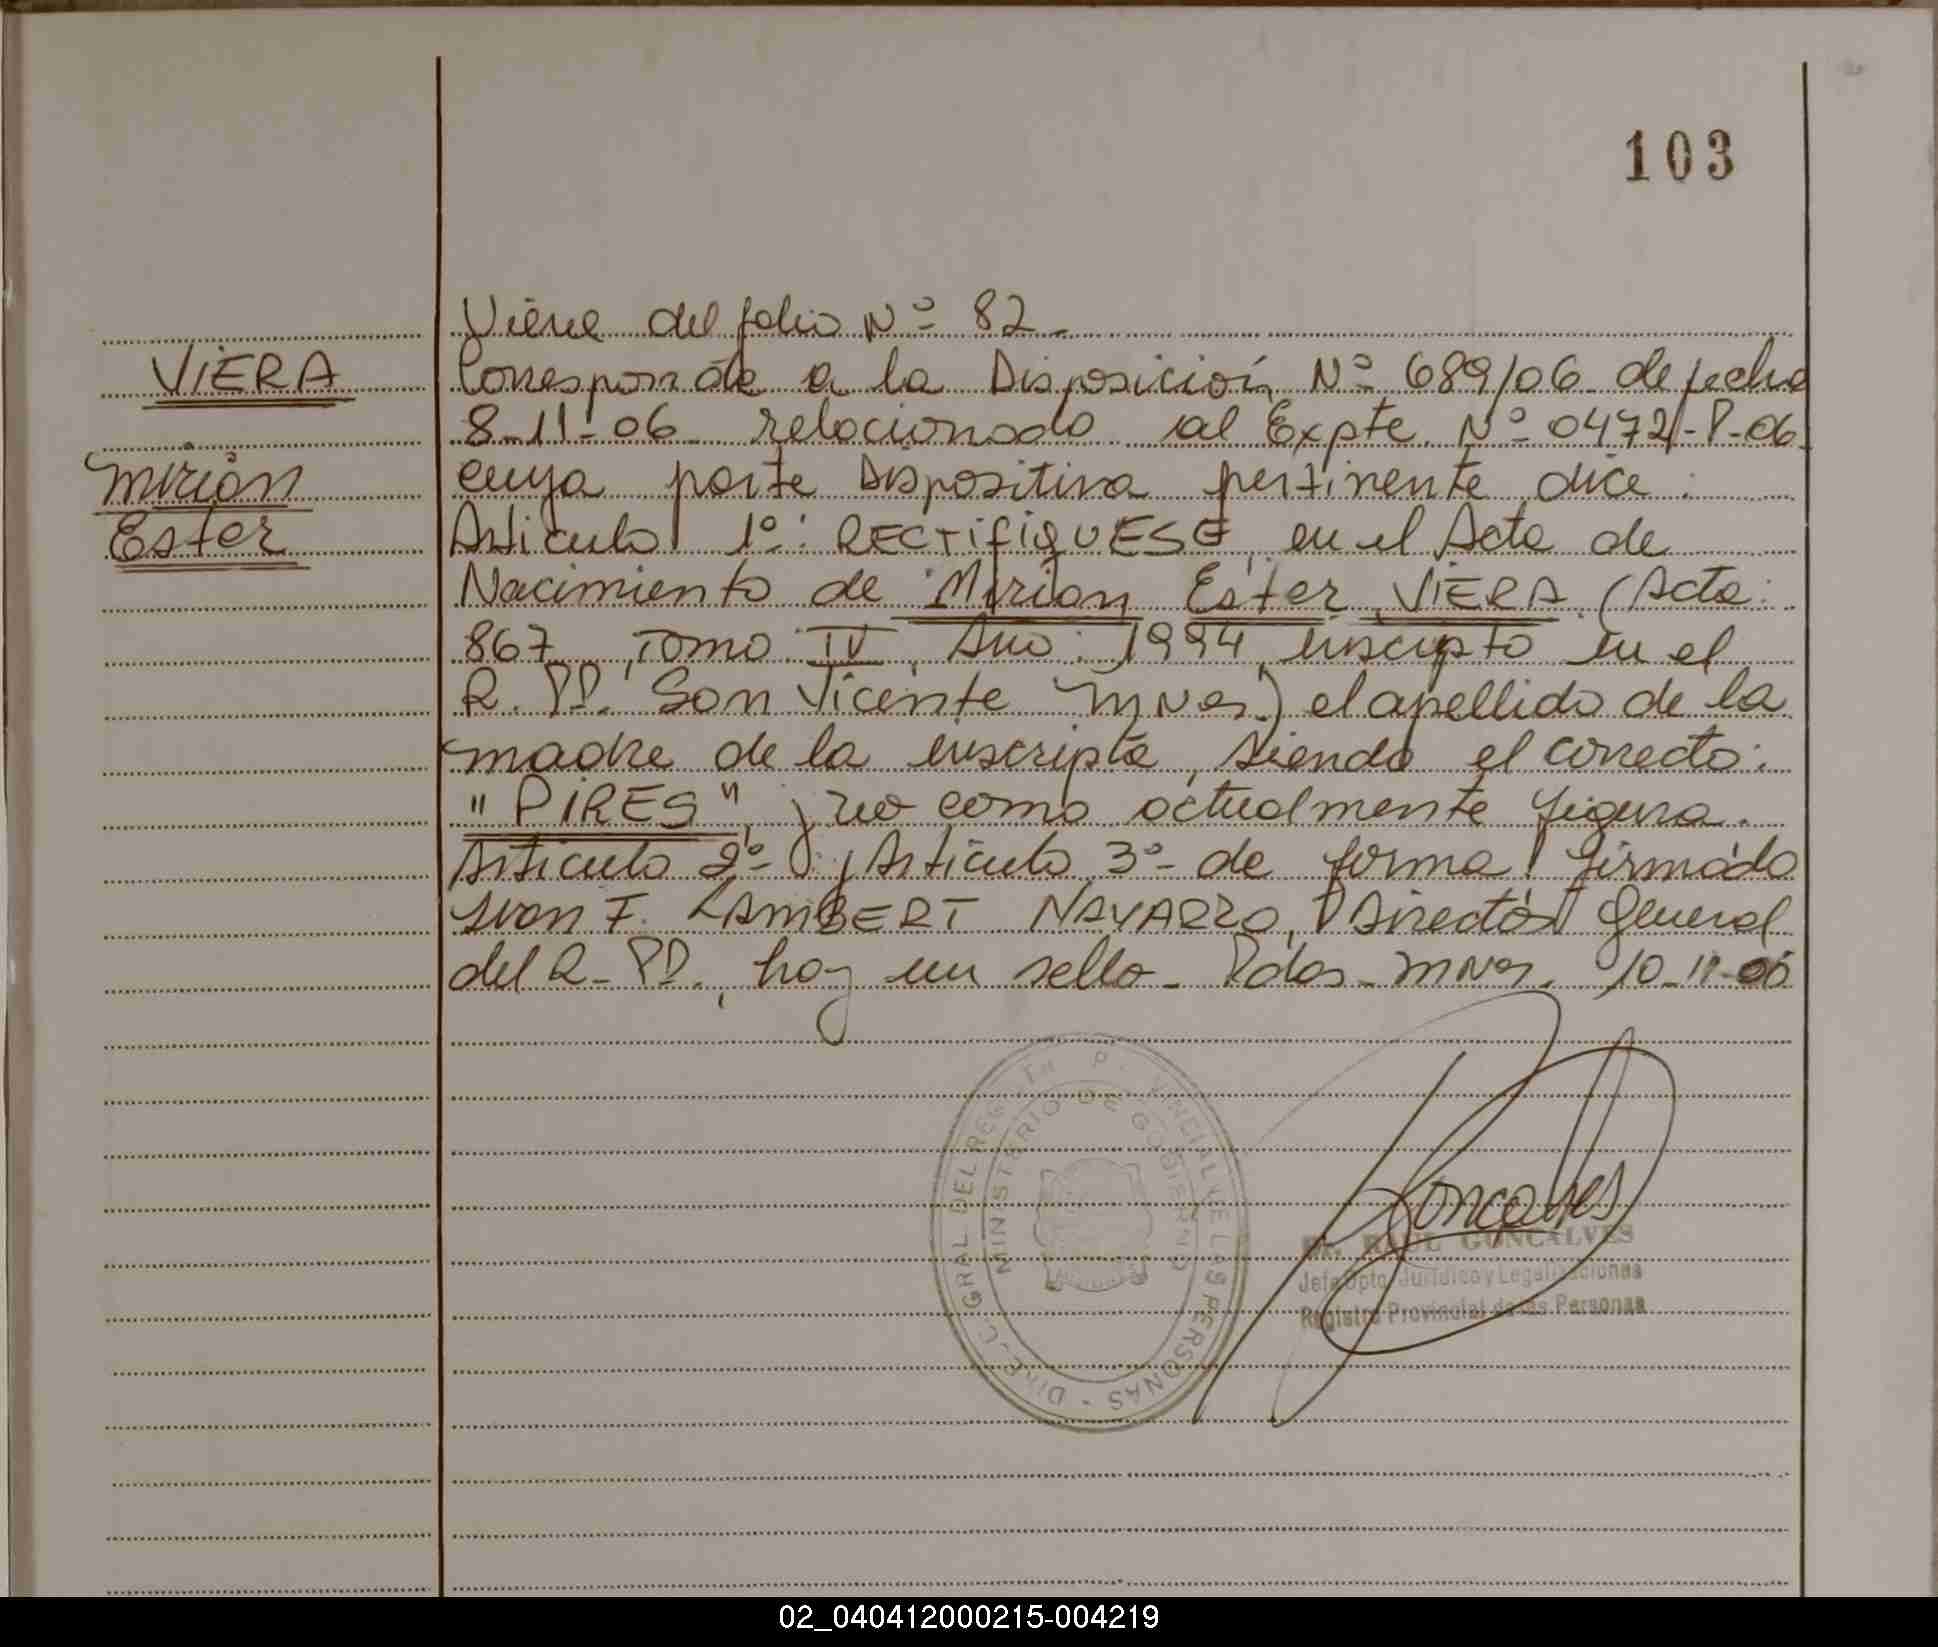 103
Viene del folio Nº 82.
VIERA
Corresponde a la Disposición Nº 689/06 de fecha
8-11-06 relacionado al Expte. Nº 0472-P-06
Mirian
cuya parte Dispositiva pertinente dice:
Ester
Articulo 1º: RECTIFIQUESE, en el Acta de
Nacimiento de Mirian Ester VIERA (Acta:
867, Tomo IV, Año: 1994, inscripto en el
R. PP. San Vicente Mnes.) el apellido de la
madre de la inscripta, siendo el correcto:
"PIRES", y no como actualmente figura.
Articulo 2º y Articulo 3º de forma, firmado
Ivan F. LAMBERT NAVARRO, Director General
del R. PP., hay un sello. Pdas. Mnes. 10-11-06
DIREC. GRAL. DEL REGISTRO PROVINCIAL DE LAS PERSONAS
MINISTERIO DE GOBIERNO
Goncalves
Dr. RAUL GONCALVES
Jefe Dpto. Jurídico y Legalizaciones
Registro Provincial de las Personas
02_040412000215-004219